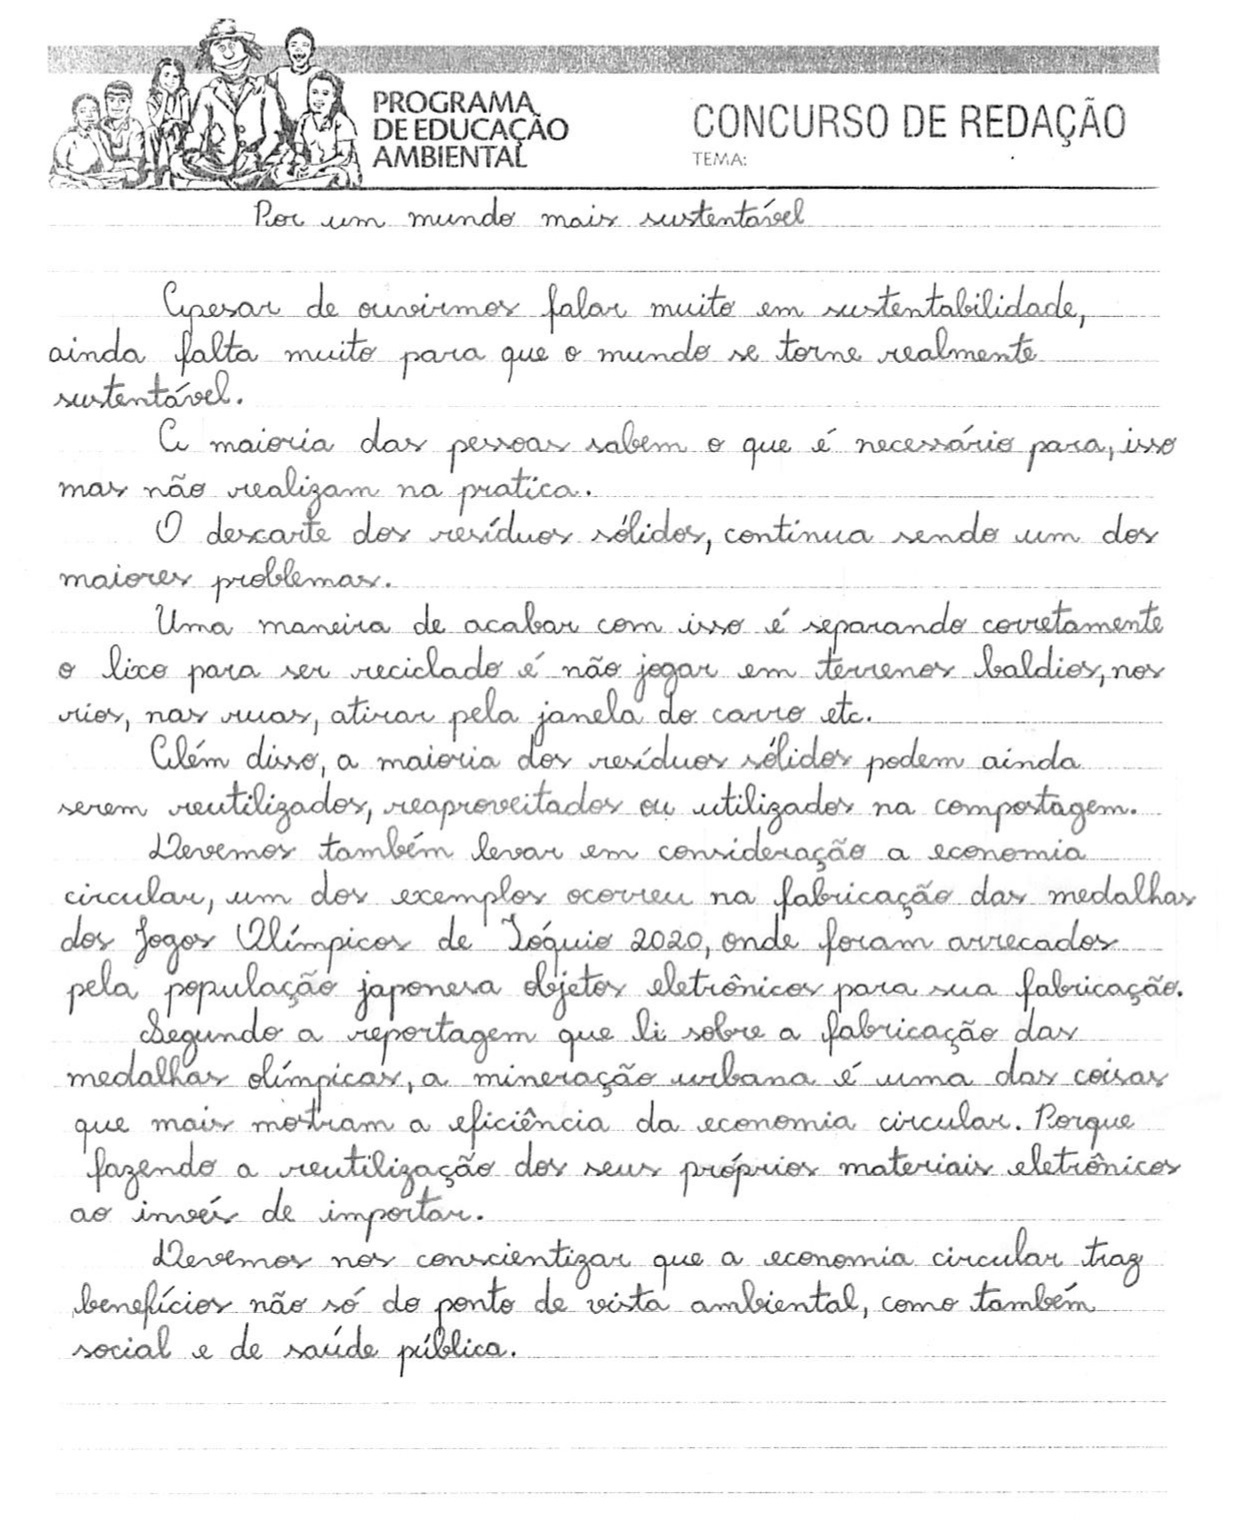 PROGRAMA
DE EDUCAÇÃO
AMBIENTAL
CONCURSO DE REDAÇÃO
TEMA:
Por um mundo mais sustentável
Apesar de ouvirmos falar muito em sustentabilidade,
ainda falta muito para que o mundo se torne realmente
sustentável.
A maioria das pessoas sabem o que é necessário para, isso
mas não realizam na pratica.
O descarte dos resíduos sólidos, continua sendo um dos
maiores problemas.
Uma maneira de acabar com isso é separando corretamente
o lixo para ser reciclado é não jogar em terrenos baldios, nos
rios, nas ruas, atirar pela janela do carro etc.
Além disso, a maioria dos resíduos sólidos podem ainda
serem reutilizados, reaproveitados ou utilizados na compostagem.
Devemos também levar em consideração a economia
circular, um dos exemplos ocorreu na fabricação das medalhas
dos Jogos Olímpicos de Tóquio 2020, onde foram arrecados
pela população japonesa objetos eletrônicos para sua fabricação.
Segundo a reportagem que li sobre a fabricação das
medalhas olímpicas, a mineração urbana é uma das coisas
que mais mostram a eficiência da economia circular. Porque
fazendo a reutilização dos seus próprios materiais eletrônicos
ao invés de importar.
Devemos nos conscientizar que a economia circular traz
benefícios não só do ponto de vista ambiental, como também
social e de saúde pública.